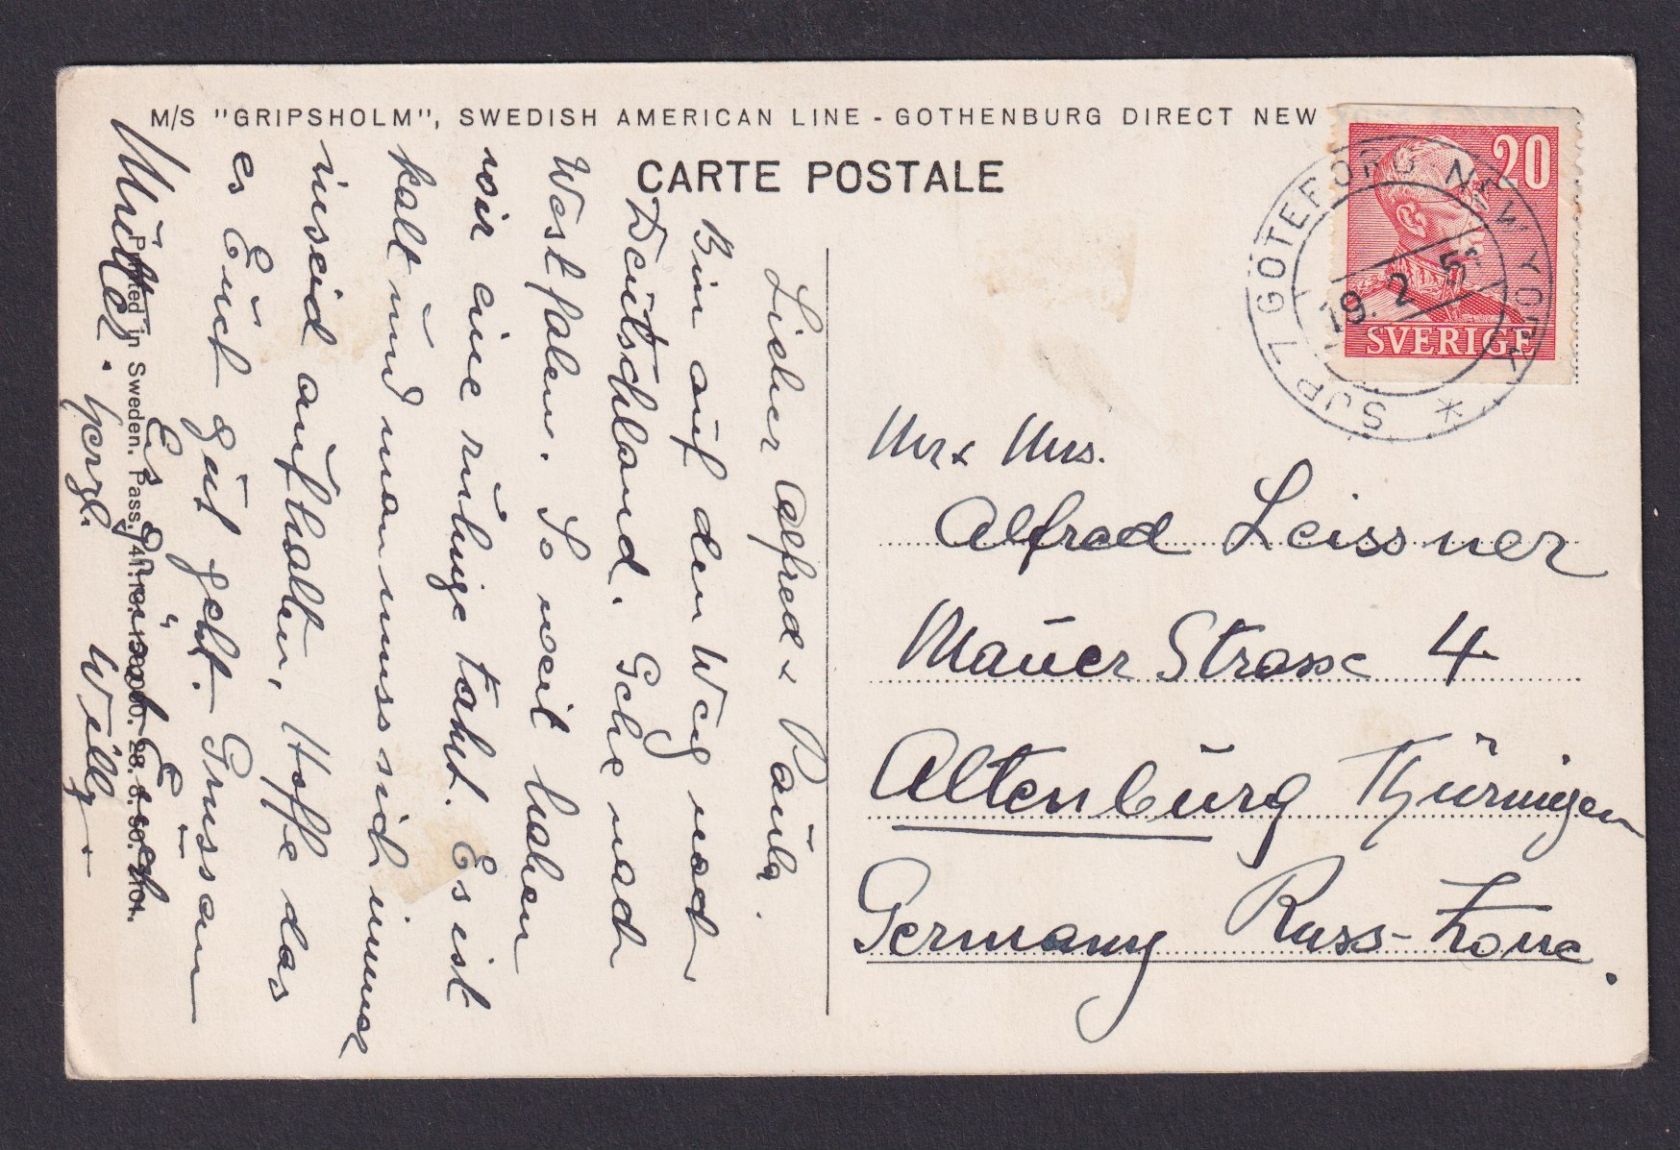 M/S "GRIPSHOLM", SWEDISH AMERICAN LINE - GOTHENBURG DIRECT NEW
CARTE POSTALE
20
SVERIGE
SJP 7 GÖTEBORG NEW YORK
19. 2 5
Lieber Alfred & Paula.
Bin auf den Weg nach
Deutschland. Gehe nach
Westfalen. So weit haben
wir eine ruhige Fahrt. Es ist
kalt und man muss sich immer
inseid aufhalten, Hoffe das
es Euch gut geht. Grüssan
Mutter. Es grüsst Euch
herzl. Willy.
Printed in Sweden. Pass.
Mr & Mrs.
Alfred Leissner
Mauer Strasse 4
Altenburg Thüringen
Germany Russ-Zone.